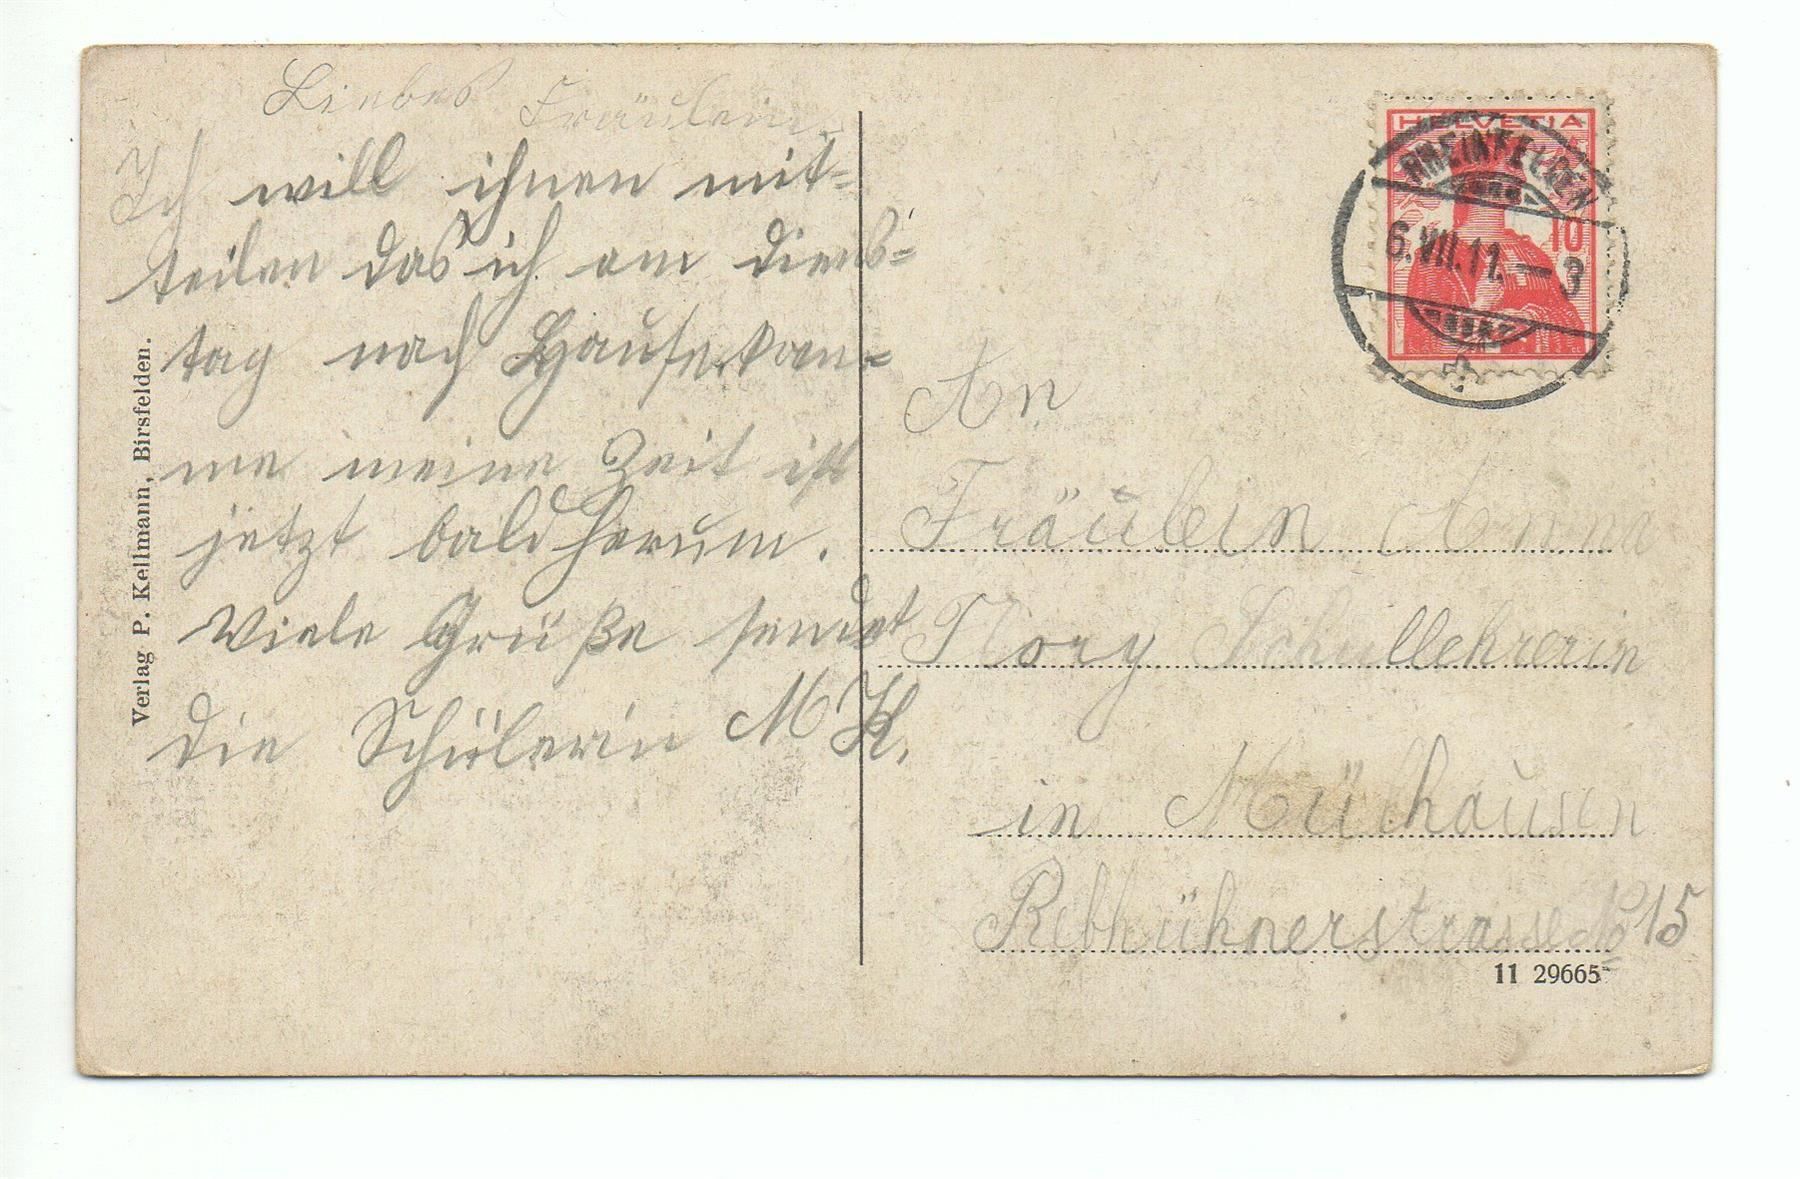 Liebes Fräulein.
Ich will ihnen mit=
teilen das ich am diens=
tag nach Hause kom=
me meine Zeit ist
jetzt bald herum.
Viele Grüße sendet
die Schülerin M K.
Verlag P. Kellmann, Birsfelden.
HELVETIA
10
RHEINFELDEN
6.VII.11.—3
An
Fräulein Anna
Flory Schullehrerin
in Mülhausen
Rebhühnerstrasse No 15
11 29665